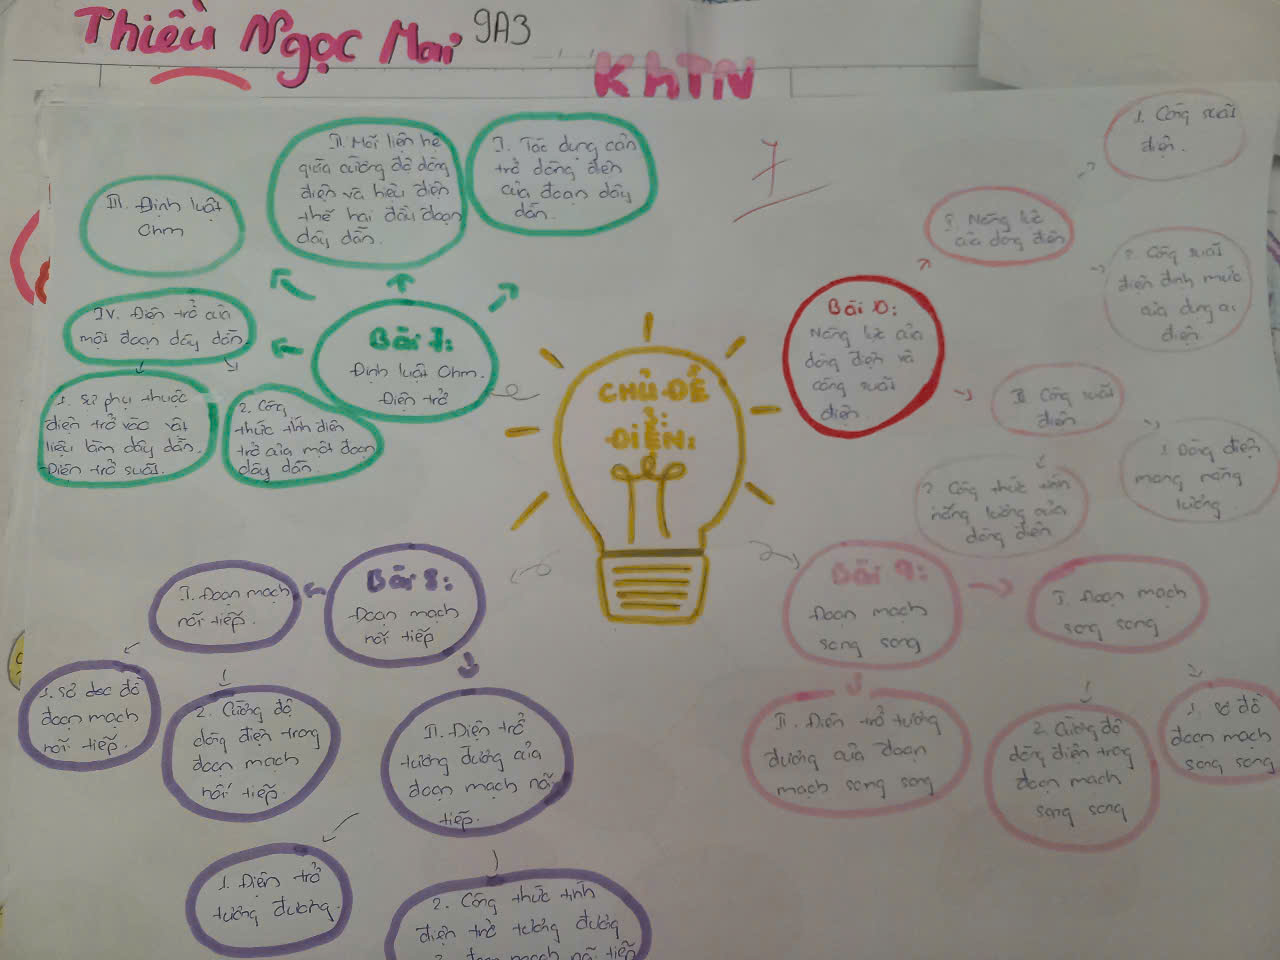 Thiều Ngọc Mai 9A3
KHTN
7
CHỦ ĐỀ
3:
ĐIỆN:
Bài 7:
Định luật Ohm.
Điện trở
I. Tác dụng cản
trở dòng điện
của đoạn dây
dẫn.
II. Mối liên hệ
giữa cường độ dòng
điện và hiệu điện
thế hai đầu đoạn
dây dẫn.
III. Định luật
Ohm
IV. Điện trở của
một đoạn dây dẫn.
1. Sự phụ thuộc
điện trở vào vật
liệu làm dây dẫn.
Điện trở suất.
2. Công
thức tính điện
trở của một đoạn
dây dẫn.
Bài 8:
Đoạn mạch
nối tiếp
I. Đoạn mạch
nối tiếp.
1. Sơ đồ
đoạn mạch
nối tiếp.
2. Cường độ
dòng điện trong
đoạn mạch
nối tiếp.
II. Điện trở
tương đương của
đoạn mạch nối
tiếp.
1. Điện trở
tương đương.
2. Công thức tính
điện trở tương đương
đoạn mạch nối tiếp
Bài 9:
Đoạn mạch
song song
I. Đoạn mạch
song song
1. Sơ đồ
đoạn mạch
song song
2. Cường độ
dòng điện trong
đoạn mạch
song song
II. Điện trở tương
đương của đoạn
mạch song song
Bài 10:
Năng lực của
dòng điện và
công suất
điện.
I. Năng lực
của dòng điện
1. Công suất
điện.
2. Công suất
điện định mức
của dụng cụ
điện
II. Công suất
điện
1. Dòng điện
mang năng
lượng.
2. Công thức tính
năng lượng của
dòng điện